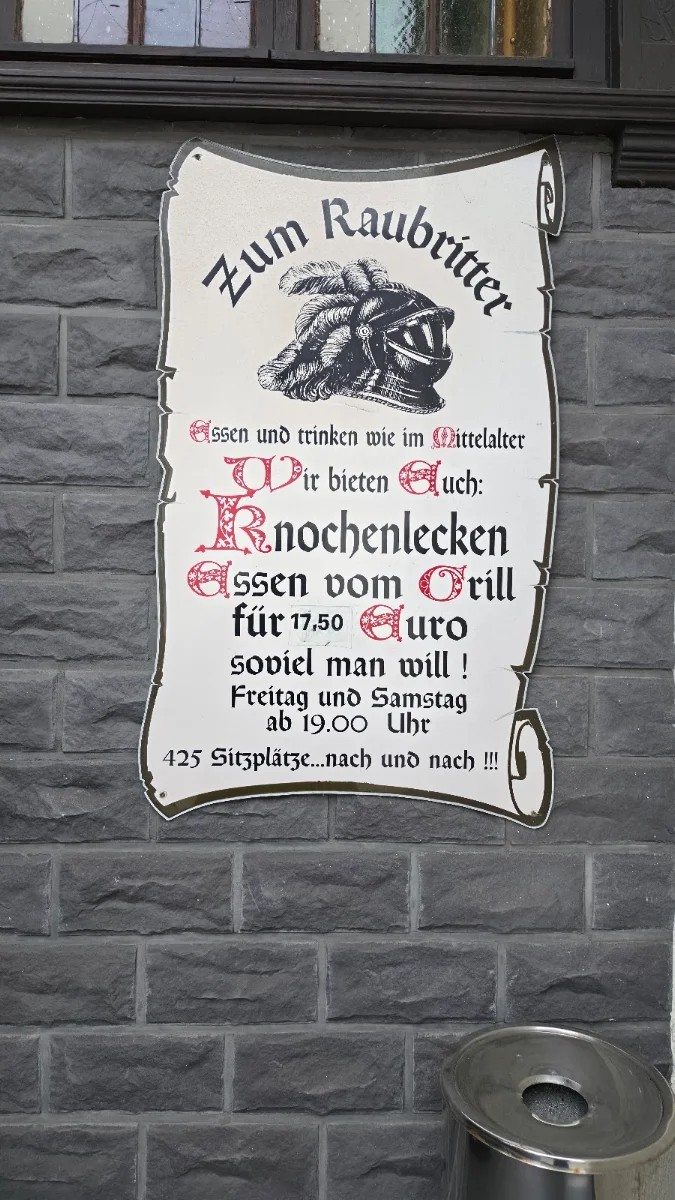 Zum Raubritter
Essen und trinken wie im Mittelalter
Wir bieten Auch:
Knochenlecken
Essen vom Grill
für 17,50 Euro
soviel man will !
Freitag und Samstag
ab 19.00 Uhr
425 Sitzplätze...nach und nach !!!